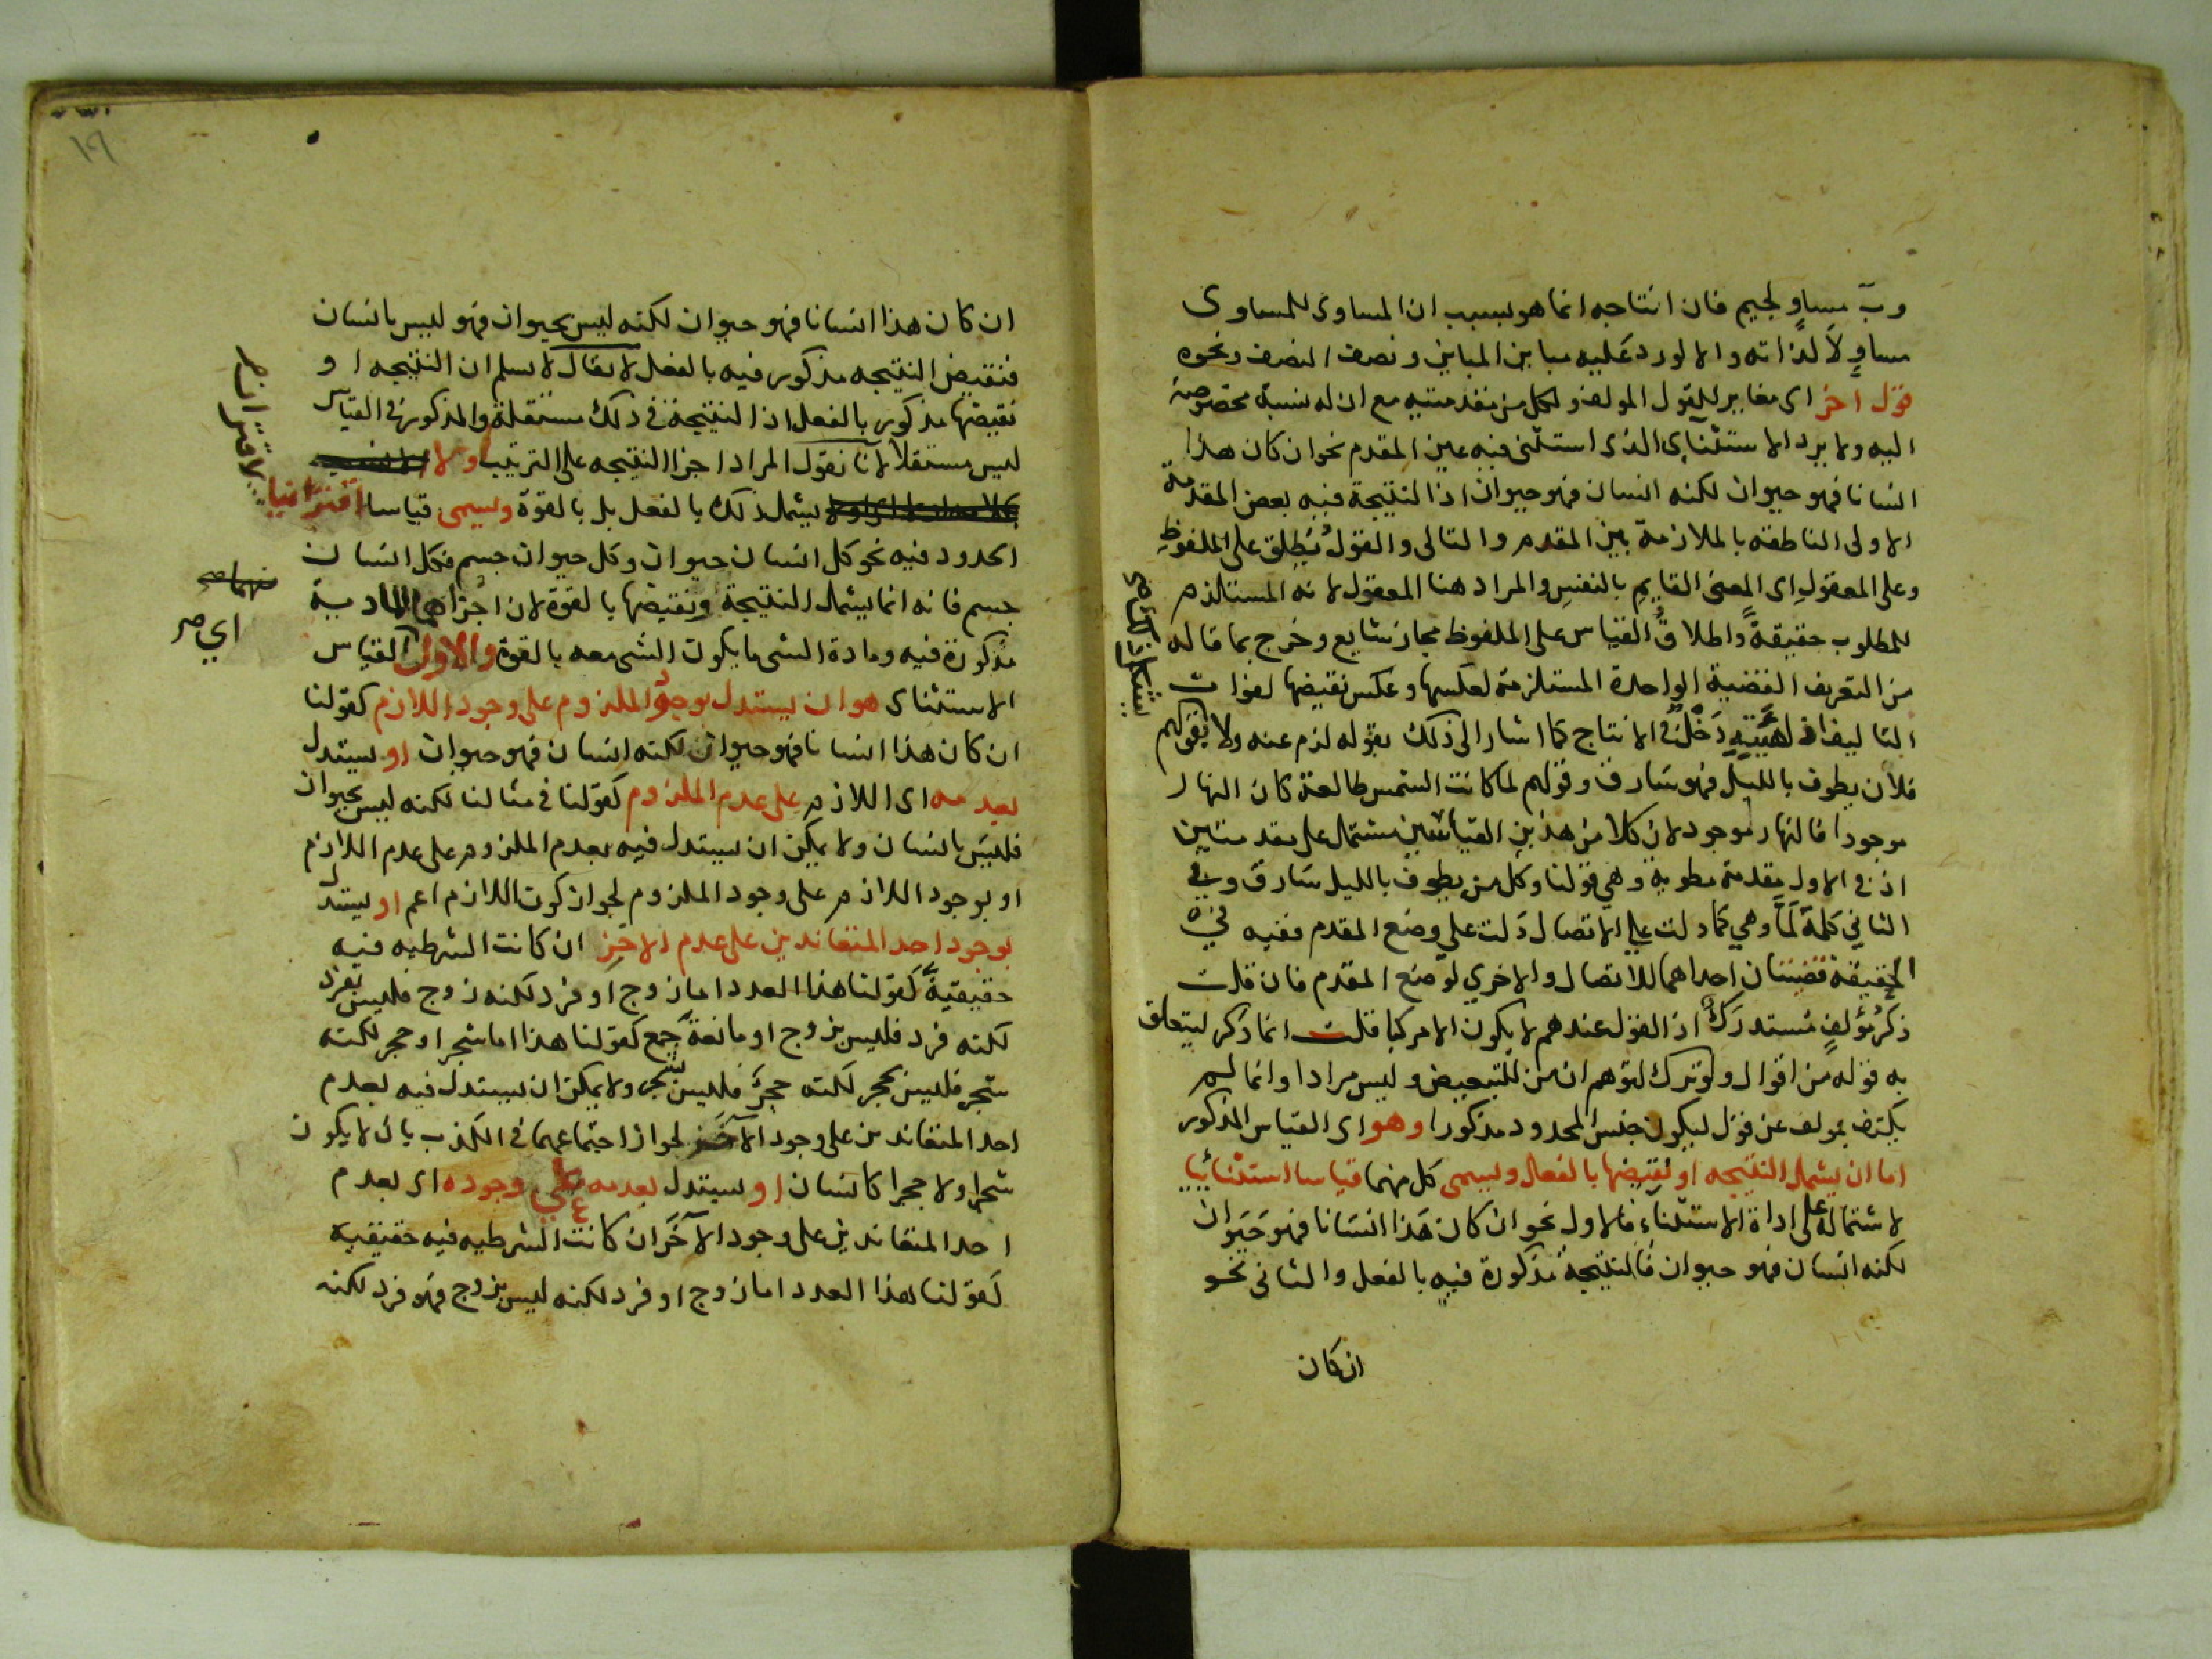 وبّ مساوٍ لجيم فان انتاجه انما هو بسبب ان المساوى للمساوى
مساوٍ لا لذاته والا لورد عليه مباين المباين ونصف النصف ونحوه
قول آخر اى مغاير للقول المولف ولكل من مقدمتيه مع ان له نسبة مخصوصة
اليه ولا يرد الاستثناى الذى استثنى فيه عين المقدم نحو ان كان هذا
انسانا فهو حيوان لكنه انسان فهو حيوان اذ النتيجة فيه بعض المقدمة
الاولى الناطقة بالملازمة بين المقدم والتالى والقول يُطلق على الملفوظ
وعلى المعقول اى المعنى القايم بالنفس والمراد هنا المعقول لانه المستلزم
للمطلوب حقيقةً واطلاق القياس على الملفوظ مجاز شايع وخرج بما قاله
من التعريف القضية الواحدة المستلزمة لعكسها وعكس نقيضها لفوات
التاليف اذ لهيئته دَخْل فى الانتاج كما اشار الى ذلك بقوله لزم عنه ولا نحو قولهم
فلان يطوف بالليل فهو سارق وقولهم لما كانت الشمس طالعة كان النهار
موجودا فالنهار موجود لان كلا من هذين القياسين مشتمل على مقدمتين
اذ فى الاول مقدمة مطوية وهي قولنا وكل من يطوف بالليل سارق وفي
الثاني كلمة لمّا وهي كما دلت علي الاتصال دَلت علي وضع المقدم ففيه في
الحقيقة قضيتان احداهما للاتصال والاخري لوضع المقدم فان قلت
ذكرُ مُؤلفٍ مُستدرَكٌ اذ القول عندهم لا يكون الا مركبا قلت انما ذكر ليتعلق
به قوله من اقوال ولو ترك لتوهم ان من للتبعيض وليس مرادا وانما لم
يكتف بمولف عن قول ليكون جنس المحدود مذكورا وهو اى القياس المذكور
اما ان يشمل النتيجه او نقيضها بالفعل ويسمى كل منهما قياسا استثنائيا
لاشتماله على اداة الاستثناء فالاول نحو ان كان هَذا انسَانا فهو حَيَوان
لكنه انسان فهو حيوان فالنتيجة مذكورة فيه بالفعل والثانى نحو
ان كان
ان كان هذا انسانا فهو حيوان لكنه ليس بحيوان فهو ليس بانسان
فنقيض النتيجه مذكور فيه بالفعل لا يقال لا نسلم ان النتيجه او
نقيضها مذكور بالفعل اذ النتيجة فى ذلك مستقلة والمذكور فى القياس
ليس مستقلا لانا نقول المراد اجزا النتيجه على الترتيب او لا
يشمل ذلك بالفعل بل بالقوة ويسمى قياسا اقترانيا
لاقتران
الحدود فيه نحو كل انسان حيوان وكل حيوان جسم فكل انسان
جسم فانه انما يشمل النتيجة ونقيضها بالقوة لان اجزاها المادية
اي
مذكورة فيه ومادة الشى ما يكون الشى معه بالقوة والاول القياس
الاستثناى هو ان يستدل بوجود الملزوم على وجود اللازم كقولنا
ان كان هذا انسانا فهو حيوان لكنه انسان فهو حيوان او يستدل
بعدمه اى اللازم على عدم الملزوم كقولنا فى مثالنا لكنه ليس بحيوان
فليسَ بانسان ولا يمكن ان يستدل فيه بعدم الملزوم على عدم اللازم
او بوجود اللازم على وجود الملزوم لجواز كون اللازم اعم او يستدل
بوجود احد المتعاندين على عدم الاخر ان كانت الشرطيه فيه
حقيقيةً كقولنا هذا العدد اما زوج او فرد لكنه زوج فليس بفرد
لكنه فرد فليس بزوج او مانعة جمع كقولنا هذا اما شجر او حجر لكنه
شجر فليس بحجر لكنه حجر فليس بشجر ولا يمكن ان يستدل فيه بعدم
احد المتعاندين على وجود الاخر لجواز اجتماعهما فى الكذب بان لا يكون
شجرا ولا حجرا كانسان او يستدل بعدمه على وجوده اى بعدم
احد المتعاندين على وجود الآخَر ان كانت الشرطيه فيه حقيقية
كقولنا هذا العدد اما زوج او فرد لكنه ليس بزوج فهو فرد لكنه